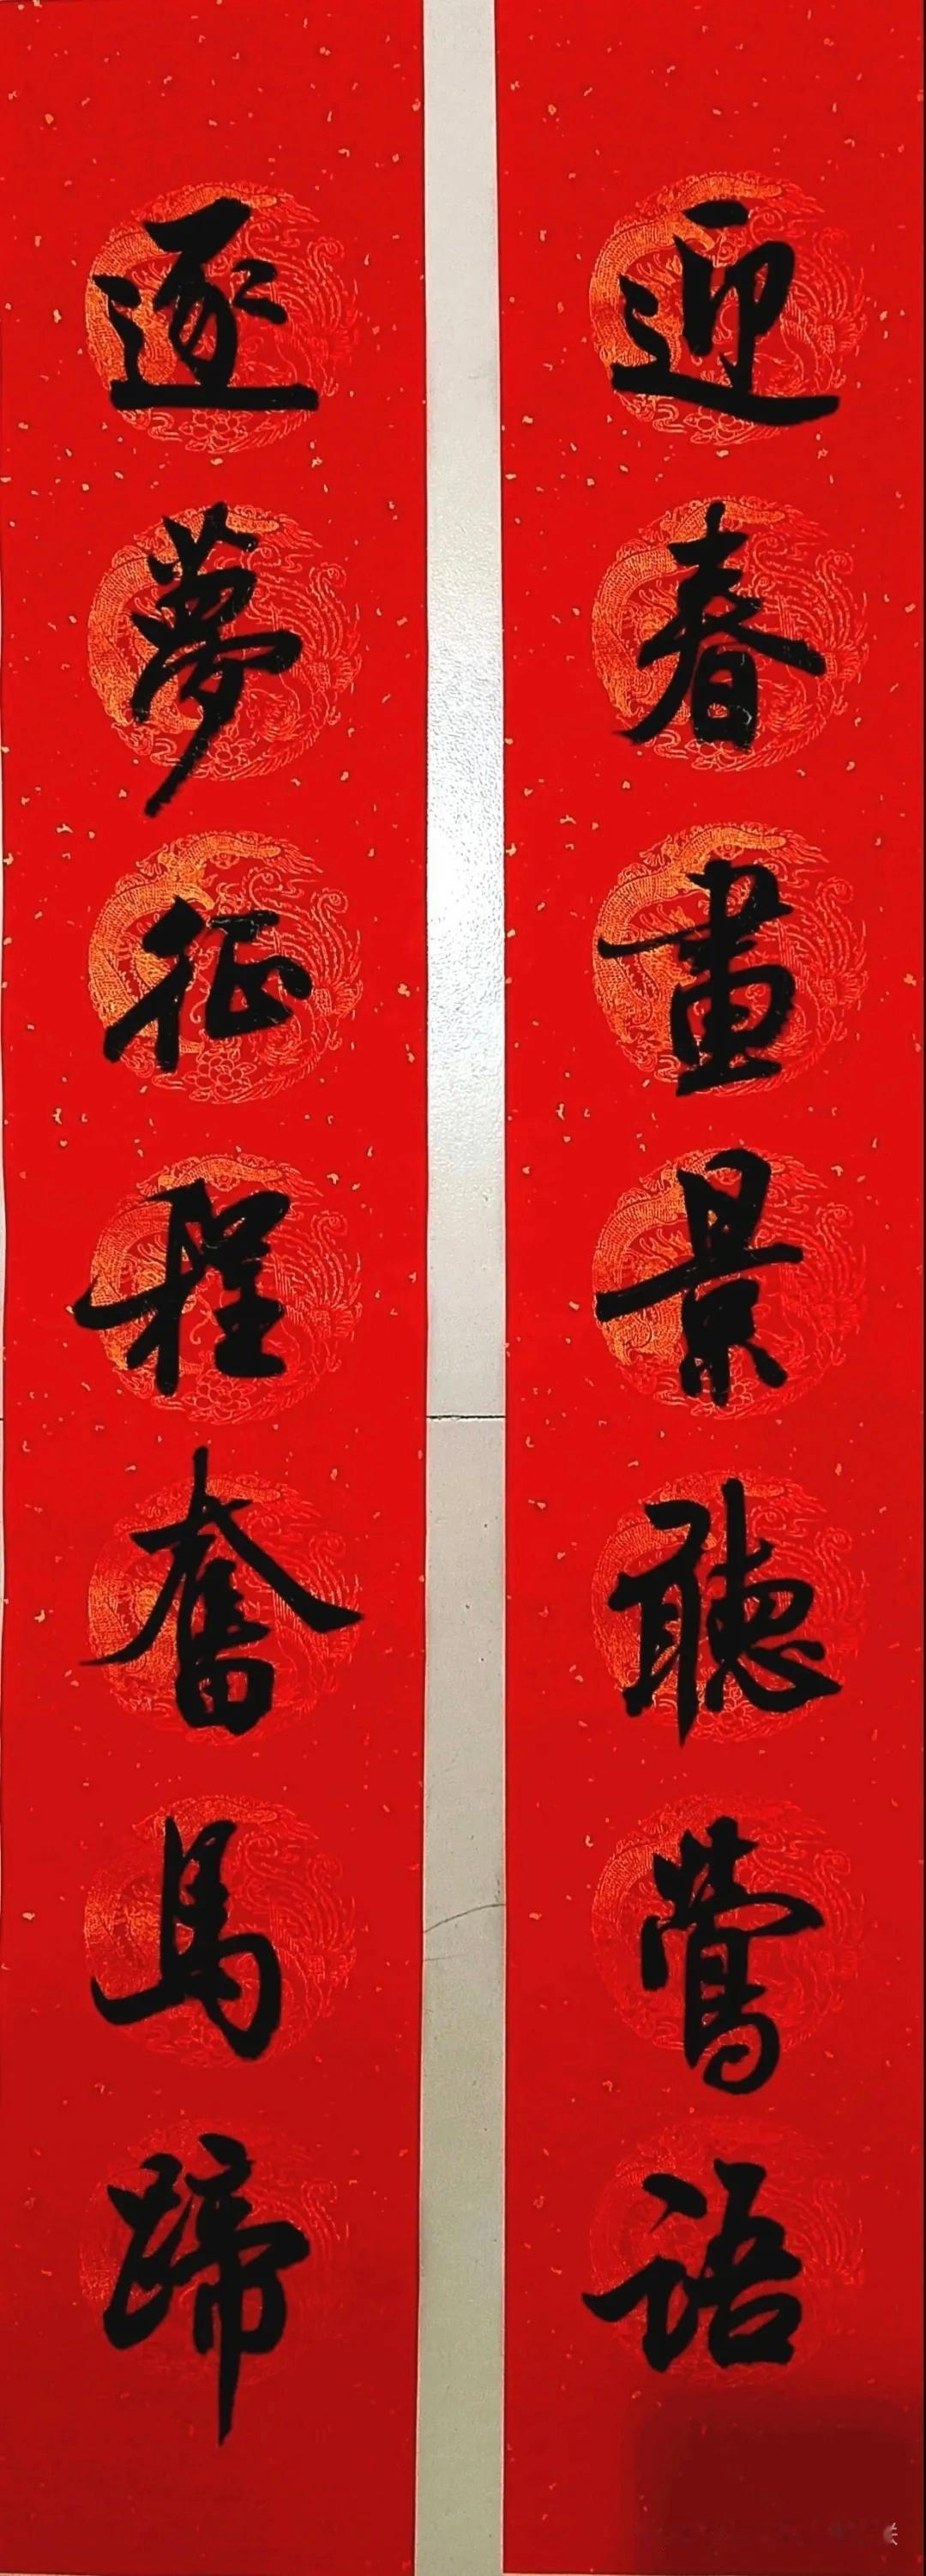 迎春畫景聽鶯語
逐夢征程奮馬蹄